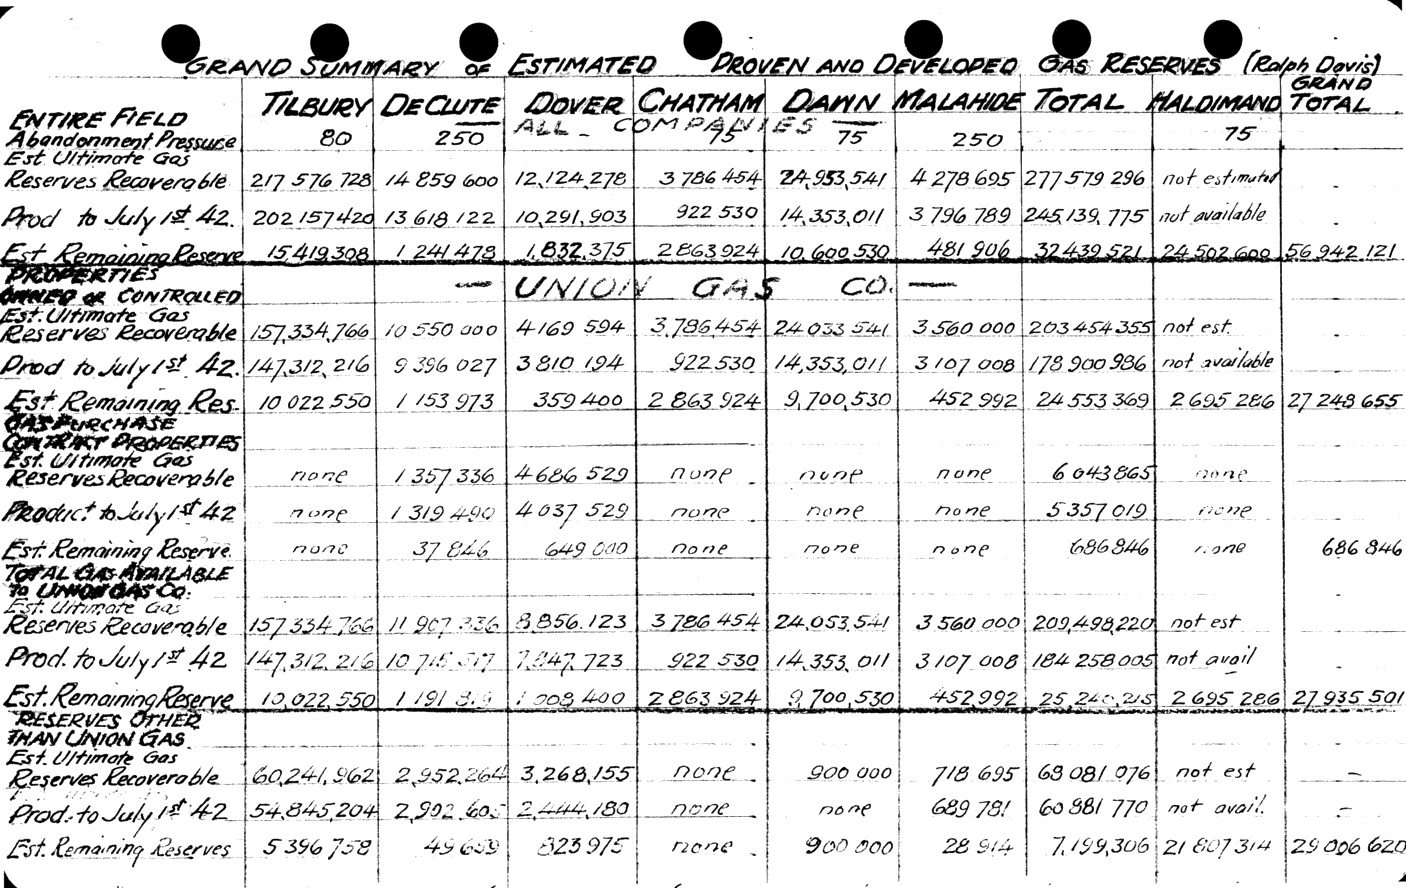 GRAND SUMMARY OF ESTIMATED PROVEN AND DEVELOPED GAS RESERVES (Ralph Davis)
ENTIRE FIELD TILBURY DECLUTE DOVER CHATHAM DAWN MALAHIDE TOTAL HALDIMAND GRAND TOTAL
— ALL - COMPANIES —
Abandonment Pressure 80 250 75 75 250 75
Est Ultimate Gas
Reserves Recoverable 217 576 728 14 859 600 12,124,278 3 786 454 24,953,541 4 278 695 277 579 296 not estimated -
Prod to July 1st 42. 202 157 420 13 618 122 10,291,903 922 530 14,353,011 3 796 789 245,139,775 not available -
Est Remaining Reserve 15,419,308 1 241 478 1,832,375 2 863 924 10,600,530 481 906 32 439,521 24 502 600 56 942,121
PROPERTIES
OWNED or CONTROLLED — UNION GAS CO. —
Est. Ultimate Gas
Reserves Recoverable 157,334,766 10 550 000 4 169 594 3,786,454 24 033 541 3 560 000 203 454 355 not est. -
Prod to July 1st 42. 147,312,216 9 396 027 3 810 194 922 530 14,353,011 3 107 008 178 900 986 not available -
Est Remaining Res. 10 022 550 1 153 973 359 400 2 863 924 9,700,530 452 992 24 553 369 2 695 286 27 248 655
GAS PURCHASE
CONTRACT PROPERTIES
Est. Ultimate Gas
Reserves Recoverable none 1 357 336 4 686 529 none none none 6 043 865 none -
Product to July 1st 42 none 1 319 490 4 037 529 none none none 5 357 019 none -
Est. Remaining Reserve. none 37 846 649 000 none none none 686 846 none 686 846
TOTAL GAS AVAILABLE
To UNION GAS CO.
Est. Ultimate Gas
Reserves Recoverable 157 334 766 11 907 336 8,856,123 3 786 454 24,053,541 3 560 000 209,498,220 not est -
Prod. to July 1st 42 147,312,216 10 715 517 7,847,723 922 530 14,353,011 3 107 008 184 258 005 not avail -
Est. Remaining Reserve 10,022,550 1 191 819 1 008 400 2 863 924 9,700,530 452,992 25,240,215 2 695 286 27 935 501
RESERVES OTHER
THAN UNION GAS.
Est. Ultimate Gas
Reserves Recoverable 60,241,962 2,952,264 3,268,155 none 900 000 718 695 68 081 076 not est —
Prod. to July 1st 42 54,845,204 2,902 605 2,444,180 none none 689 781 60 881 770 not avail. -
Est. Remaining Reserves 5 396 758 49 659 823 975 none 900 000 28 914 7,199,306 21 807 314 29 006 620